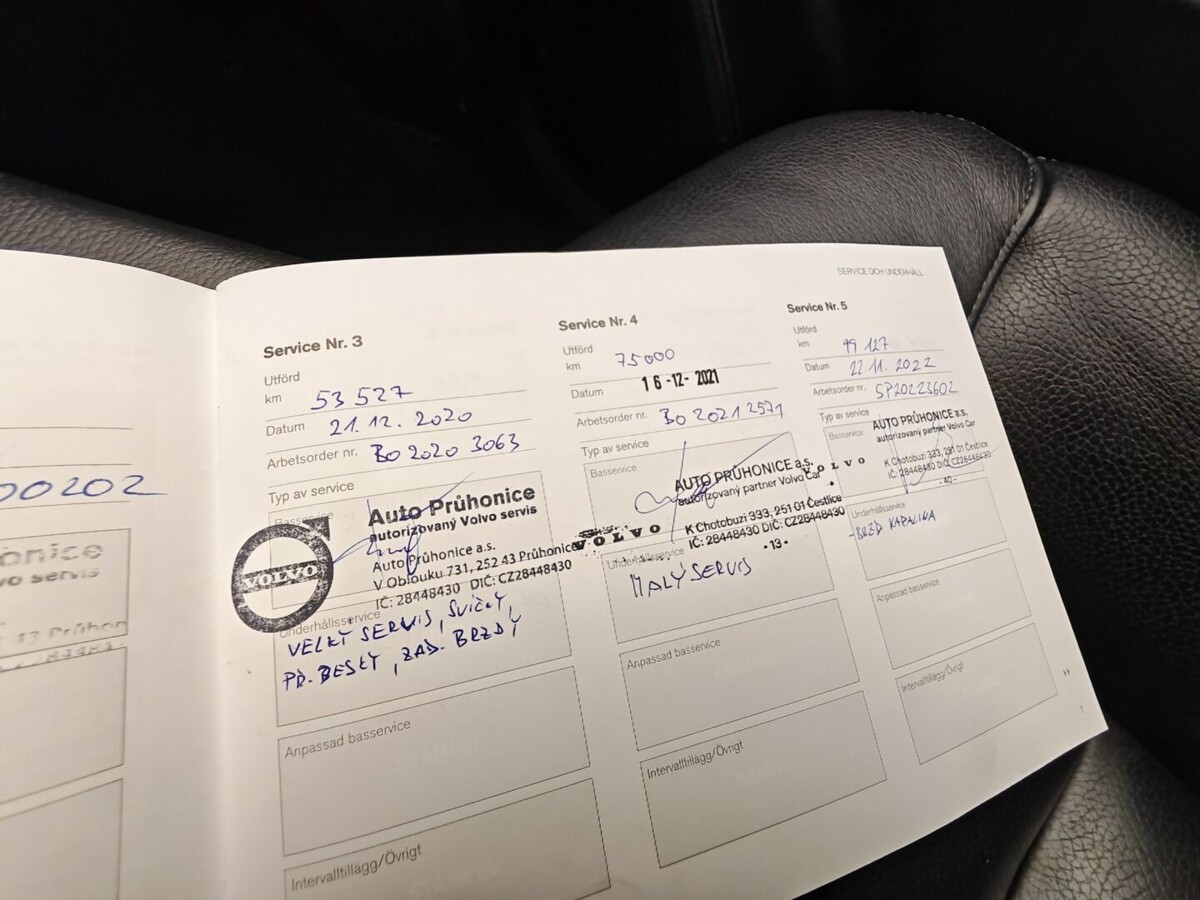 SERVICE OCH UNDERHÅLL
00202
onice
vo servis
13 Průhon
Service Nr. 3
Utförd
km 53 527
Datum 21.12.2020
Arbetsorder nr. BO 2020 3063
Typ av service
Basservice
Auto Průhonice
autorizovaný Volvo servis
Auto Průhonice a.s.
V Oblouku 731, 252 43 Průhonice
IČ: 28448430 DIČ: CZ28448430
VOLVO
Underhållsservice
VELKÝ SERVIS, SVÍČKY,
PŘ. DESKY, ZAD. BRZDY
Anpassad basservice
Intervalltillägg/Övrigt
Service Nr. 4
Utförd
km 75000
Datum 16-12-2021
Arbetsorder nr. BO 2021 2571
Typ av service
Basservice
AUTO PRŮHONICE a.s.
autorizovaný partner Volvo Car
VOLVO
K Chotobuzi 333, 251 01 Čestlice
IČ: 28448430 DIČ: CZ28448430
-13-
Underhållsservice
MALÝ SERVIS
Anpassad basservice
Intervalltillägg/Övrigt
Service Nr. 5
Utförd
km 99 127
Datum 22.11.2022
Arbetsorder nr. SP20223602
Typ av service
Basservice
AUTO PRŮHONICE a.s.
autorizovaný partner Volvo Car
VOLVO
K Chotobuzi 333, 251 01 Čestlice
IČ: 28448430 DIČ: CZ28448430
-40-
Underhållsservice
-BRZD KAPALINA
Anpassad basservice
Intervalltillägg/Övrigt
»
7